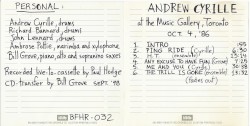 PERSONAL:
Andrew Cyrille, drums
Richard Bannard, drums
John Lennard, drums
Ambrose Pottie, marimba and xylophone
Bill Grove, piano, alto and soprano saxes
Recorded live-to-cassette by Paul Hodge
CD-transfer by Bill Grove SEPT. '98
BFHR-032
ANDREW CYRILLE
at the Music Gallery, Toronto
OCT. 4, '86
1. INTRO
2. PING RIDE (Cyrille) 6:30
3. H.T. (ensemble)
4. ANY EXCUSE TO HAVE FUN (Grove)
5. ME AND YOU (Cyrille)
6. THE TRILL IS GONE (ensemble) 13:32
(fades out)